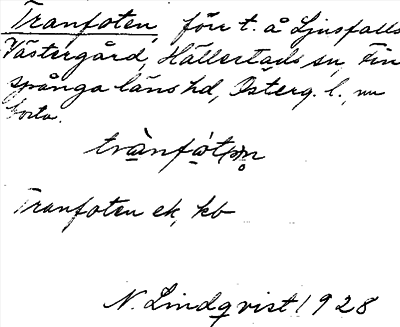 Tranfoten, förr t. å Ljusfalls
Västergård, Hällestads sn, Fin
spånga läns hd, Österg. l., nu
borta.
trànfòt(ə)n
Tranfoten ek, kb
N. Lindqvist 1928